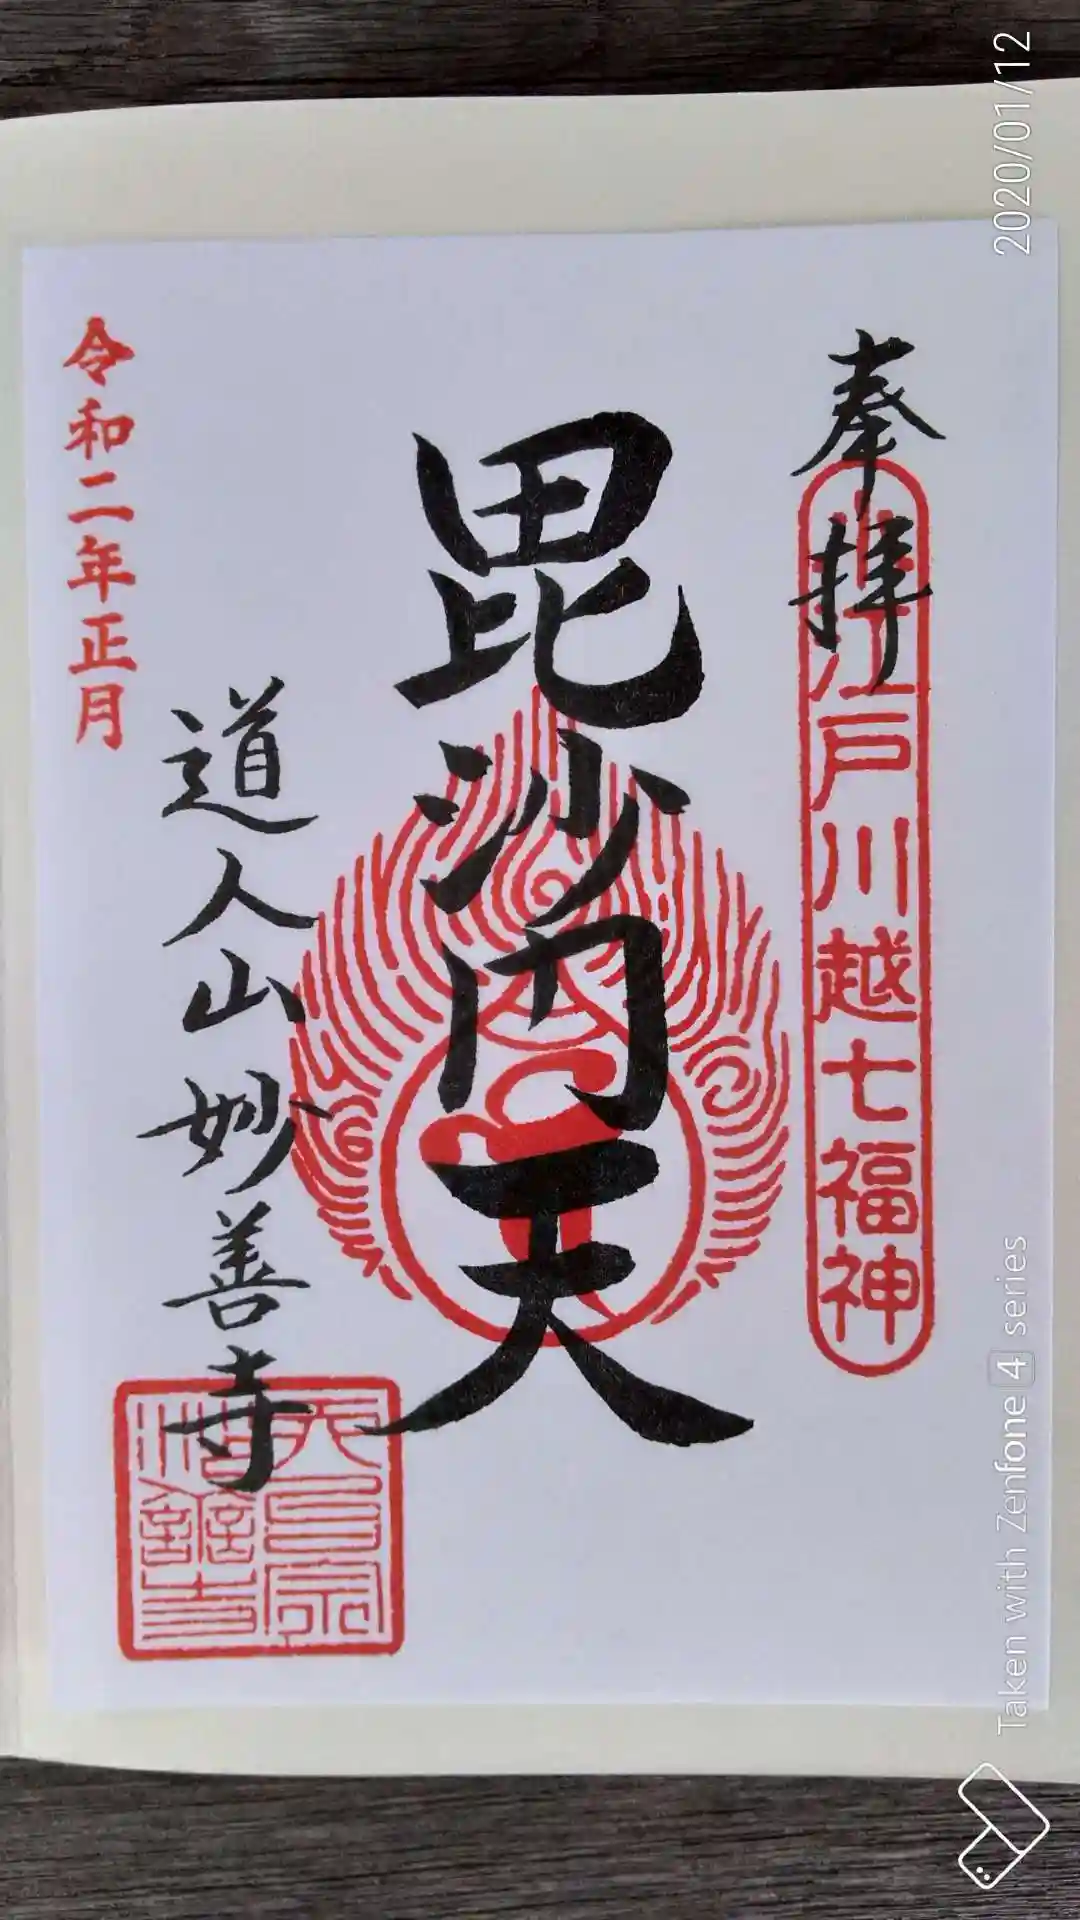 奉拝
小江戸川越七福神
毘沙门天
道人山妙善寺
令和二年正月
天台宗
2020/01/12
Taken with Zenfone 4 series